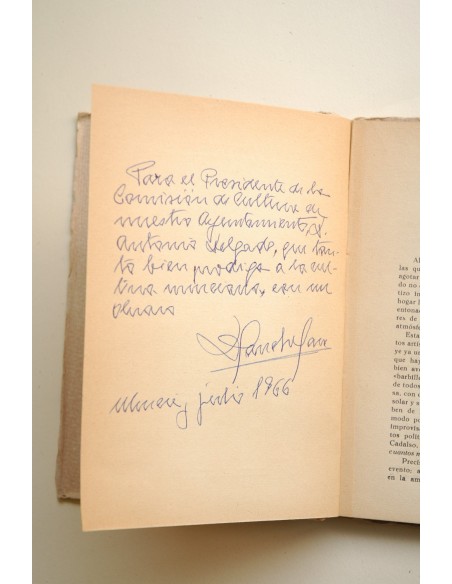 Para el Presidente de la
Comisión de Cultura de
nuestro Ayuntamiento, D.
Antonio Delgado, que tan-
to bien prodiga a la cul-
tura murciana, con un
abrazo
Murcia, julio 1966
Al
las qu
agotar
do no
tizo in
hogar l
entonad
res de
atmósf
Esta
tos artí
ye ya un
«haga
bien ave
«barbill
de todos
sa, con
solar y s
ben de
modo p
improvis
tos polít
Cadalso,
cuantos m
Preci
evento: a
en la am